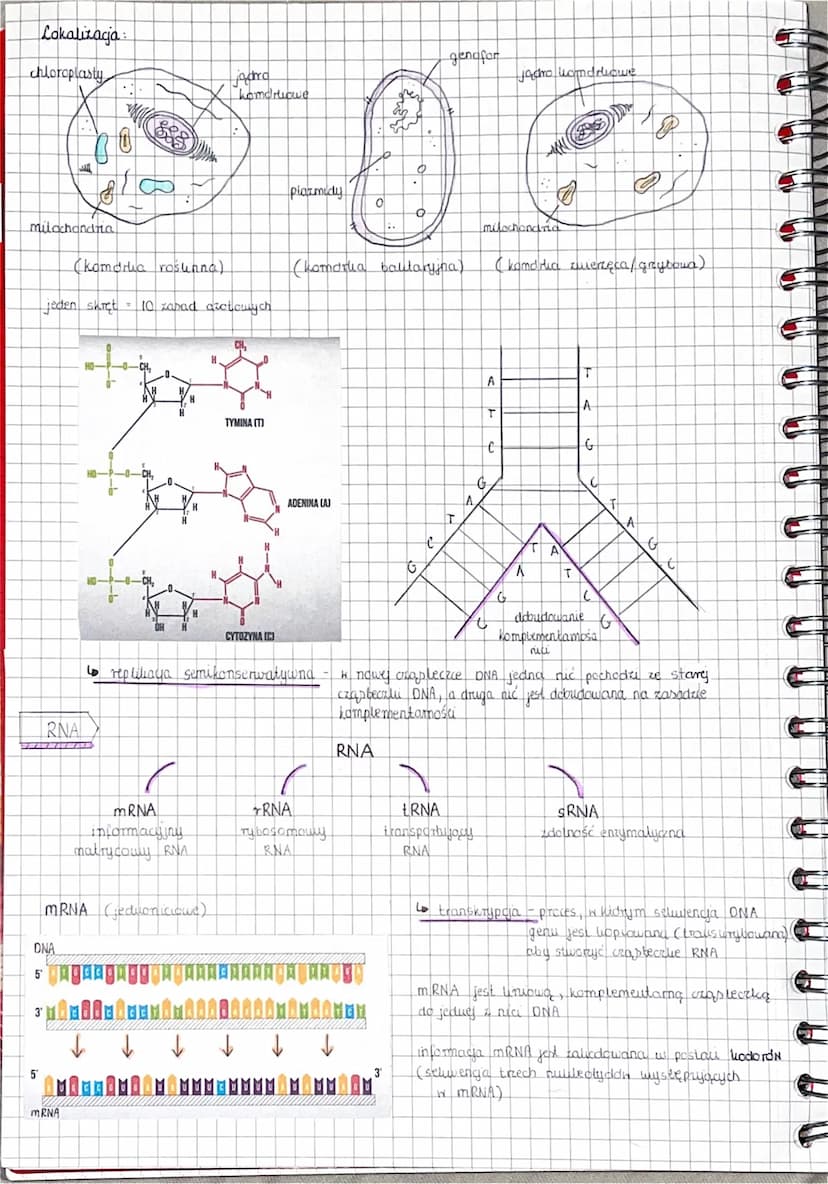 Lokalizacja:
chloroplasty
jądro
komórkowe
genofor
jądro komórkowe
plazmidy
mitochondria
mitochondria
(komórka roślinna)
(komórka bakteryjna)
(komórka zwierzęca/grzybowa)
jeden skręt = 10 zasad azotowych
TYMINA (T)
ADENINA (A)
CYTOZYNA (C)
A T
T A
C G
G C
A T
T A
C G
G C
T A
A T
G C
C G
dobudowanie
komplementarnośa
nici
↳ replikacja semikonserwatywna - w nowej cząsteczce DNA jedna nić pochodzi ze starej
cząsteczki DNA, a druga nić jest dobudowana na zasadzie
komplementarności
RNA
RNA
mRNA
informacyjny
matrycowy RNA
rRNA
rybosomowy
RNA
tRNA
transportujący
RNA
sRNA
zdolność enzymatyczna
mRNA (jednoniciowe)
DNA
5'
3'
5' 3'
mRNA
↳ transkrypcja - proces, w którym sekwencja DNA
genu jest kopiowana (transkrybowana)
aby stworzyć cząsteczkę RNA
mRNA jest liniową, komplementarną cząsteczką
do jednej z nici DNA
informacja mRNA jest zakodowana w postaci kodonów
(sekwencja trzech nukleotydów występujących
w mRNA)